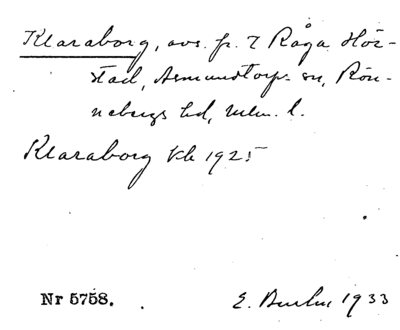 Klaraborg, avs. fr. 7 Råga Hör-
stad, Asmundtorps sn, Rön-
nebergs hd, Mlm. l.
Klaraborg Kb 1925
Nr 5758.
E. 1933